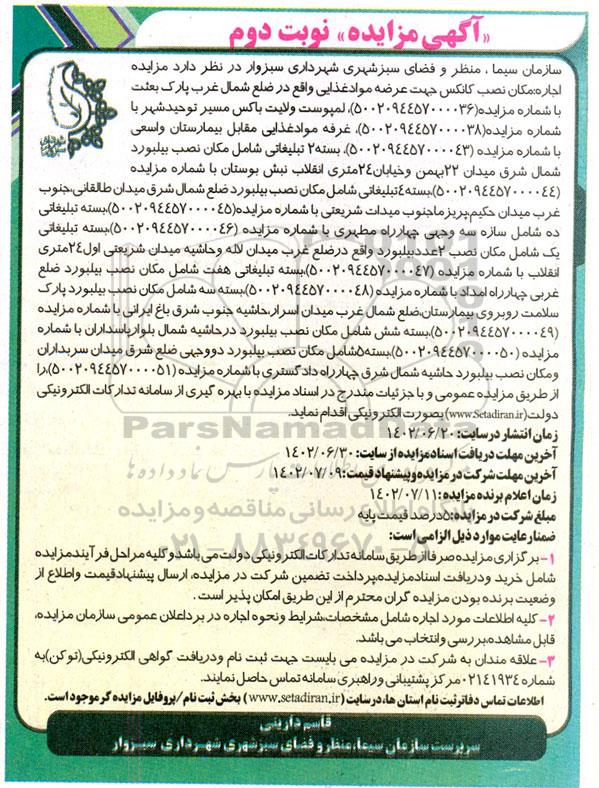 «آگهی مزایده» نوبت دوم
سازمان سیما ، منظر و فضای سبز شهری شهرداری سبزوار در نظر دارد مزایده
اجاره:مکان نصب کانکس جهت عرضه موادغذایی واقع در ضلع شمال غرب پارک بعثت
با شماره مزایده(۵۰۰۲۰۹۴۴۵۷۰۰۰۰۳۶)، لمپوست ولایت باکس مسیر توحیدشهر با
شماره مزایده(۵۰۰۲۰۹۴۴۵۷۰۰۰۰۳۸)، غرفه موادغذایی مقابل بیمارستان واسعی
با شماره مزایده (۵۰۰۲۰۹۴۴۵۷۰۰۰۰۴۳)، بسته۲ تبلیغاتی شامل مکان نصب بیلبورد
شمال شرق میدان ۲۲بهمن وخیابان۲۴متری انقلاب نبش بوستان با شماره مزایده
(۵۰۰۲۰۹۴۴۵۷۰۰۰۰۴۴)،بسته٤تبلیغاتی شامل مکان نصب بیلبورد ضلع شمال شرق میدان طالقانی،جنوب
غرب میدان حکیم،پریزماجنوب میدات شریعتی با شماره مزایده(۵۰۰۲۰۹۴۴۵۷۰۰۰۰۴۵)،بسته تبلیغاتی
ده شامل سازه سه وجهی چهارراه مطهری با شماره مزایده (۵۰۰۲۰۹۴۴۵۷۰۰۰۰۴۶)،بسته تبلیغاتی
یک شامل مکان نصب ۲عددبیلبورد واقع درضلع غرب میدان لاله وحاشیه میدان شریعتی اول۲۴متری
انقلاب با شماره مزایده (۵۰۰۲۰۹۴۴۵۷۰۰۰۰۴۷)،بسته تبلیغاتی هفت شامل مکان نصب بیلبورد ضلع
غربی چهارراه امداد با شماره مزایده (۵۰۰۲۰۹۴۴۵۷۰۰۰۰۴۸)،بسته سه شامل مکان نصب بیلبورد پارک
سلامت روبروی بیمارستان،ضلع شمال غرب میدان اسرار،حاشیه جنوب شرق باغ ایرانی با شماره مزایده
(۵۰۰۲۰۹۴۴۵۷۰۰۰۰۴۹)،بسته شش شامل مکان نصب بیلبورد درحاشیه شمال بلوارپاسداران با شماره
مزایده (۵۰۰۲۰۹۴۴۵۷۰۰۰۰۵۰)،بسته۵شامل مکان نصب بیلبورد دووجهی ضلع شرق میدان سربداران
ومکان نصب بیلبورد حاشیه شمال شرق چهارراه دادگستری با شماره مزایده (۵۰۰۲۰۹۴۴۵۷۰۰۰۰۵۱)،را
از طریق مزایده عمومی و با جزئیات مندرج در اسناد مزایده با بهره گیری از سامانه تدارکات الکترونیکی
دولت(www.Setadiran.ir) بصورت الکترونیکی اقدام نماید.
زمان انتشار در سایت: ۱۴۰۲/۰۶/۲۰
آخرین مهلت دریافت اسناد مزایده از سایت: ۱۴۰۲/۰۶/۳۰
آخرین مهلت شرکت در مزایده وپیشنهاد قیمت: ۱۴۰۲/۰۷/۰۹
زمان اعلام برنده مزایده: ۱۴۰۲/۰۷/۱۱
مبلغ شرکت در مزایده:۵درصد قیمت پایه
ضمنا رعایت موارد ذیل الزامی است:
۱- برگزاری مزایده صرفا از طریق سامانه تدارکات الکترونیکی دولت می باشد وکلیه مراحل فرآیند مزایده
شامل خرید ودریافت اسناد مزایده،پرداخت تضمین شرکت در مزایده، ارسال پیشنهادقیمت واطلاع از
وضعیت برنده بودن مزایده گران محترم از این طریق امکان پذیر است .
۲- کلیه اطلاعات مورد اجاره شامل مشخصات،شرایط ونحوه اجاره در برداعلان عمومی سازمان مزایده،
قابل مشاهده،بررسی وانتخاب می باشد.
۳- علاقه مندان به شرکت در مزایده می بایست جهت ثبت نام ودریافت گواهی الکترونیکی(توکن)به
شماره ۰۲۱۴۱۹۳۴ مرکز پشتیبانی وراهبری سامانه تماس حاصل نمایند.
اطلاعات تماس دفاتر ثبت نام استان ها، درسایت (www.setadiran.ir) بخش ثبت نام /پروفایل مزایده گر موجود است.
قاسم دارینی
سرپرست سازمان سیما،منظر و فضای سبز شهری شهرداری سبزوار
ParsNamadData
پایگاه اطلاع رسانی مناقصه و مزایده
۰۲۱-۸۸۳۴۹۶۷۰